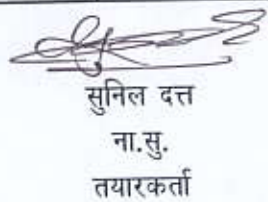 सुनिल दत्त
ना.सु.
तयारकर्ता